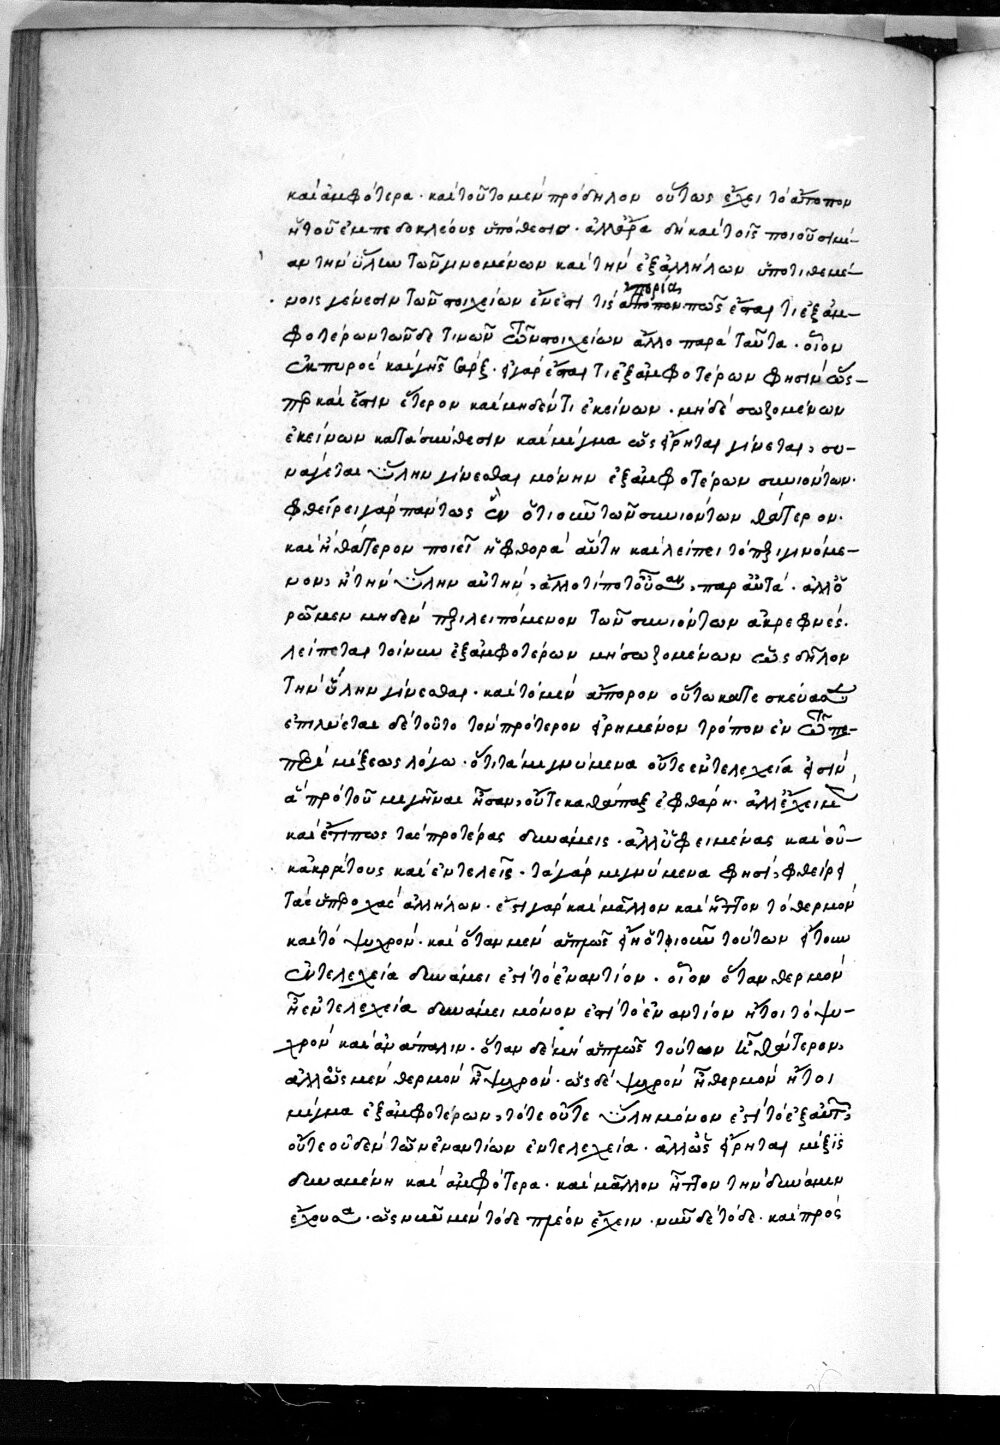 καὶ ἀμφότερα· καὶ τοῦτο μὲν πρόδηλον οὕτως ἔχει τὸ ἄτοπον
ἡ τοῦ ἐμπεδοκλέους ὑπόθεσις· ἀλλ' ἆρα δὴ καὶ τοῖς ποιοῦσι μί-
αν τὴν ὕλην τῶν γινομένων καὶ τὴν ἐξ ἀλλήλων ὑποτιθεμέ-
νοις γένεσιν τῶν στοιχείων ἔνεστί τις ἄτοπον ἀπορία, πῶς ἔσται τι ἐξ ἀμ-
φοτέρων τῶνδε τινῶν τῶν στοιχείων ἄλλο παρὰ ταῦτα· οἷον
ἐκ πυρὸς καὶ γῆς σάρξ· εἰ γὰρ ἔσται τι ἐξ ἀμφοτέρων φησὶν ὥς-
περ καὶ ἔστιν ἕτερον καὶ μηδέν τι ἐκείνων· μηδὲ σωζομένων
ἐκείνων κατὰ σύνθεσιν καὶ μίγμα ὡς εἴρηται γίνεται, συ-
νάγεται ὕλην γίνεσθαι μόνην ἐξ ἀμφοτέρων συνιόντων·
φθείρει γὰρ πάντως ἓν ὁτιοῦν τῶν συνιόντων θάτερον·
καὶ ἡ θάτερον ποιεῖ ἡ φθορὰ αὕτη καὶ λείπει τὸ περιγινόμε-
νον, ἢ τὴν ὕλην αὐτὴν, ἄλλο τί ποτ' οὖσαν, παρ' αὐτά· ἀλλ' ὁ-
ρῶμεν μηδὲν περιλειπόμενον τῶν συνιόντων ἀκραιφνές·
λείπεται τοίνυν ἐξ ἀμφοτέρων μὴ σωζομένων ὡς δῆλον
τὴν ὕλην γίνεσθαι· καὶ τὸ μὲν ἄπορον οὕτω κατεσκεύασται
ἐπιλύεται δὲ τοῦτο τὸν πρότερον εἰρημένον τρόπον ἐν τῷ πε-
περὶ μίξεως λόγω· ὅτι τὰ μιγνύμενα οὔτε ἐντελεχεία εἰσὶν
ἃ πρὸ τοῦ μιγῆναι ἦσαν, οὔτε καθάπαξ ἐφθάρη· ἀλλ' ἔχει μὲν
καὶ ἔτι πως τὰς προτέρας δυνάμεις· ἀλλ' ὑφειμένας καὶ οὐ-
κ ἀκράτους καὶ ἐντελεῖς· τὰ γὰρ μιγνύμενα φησὶ, φθείρει
τὰς ὑπεροχὰς ἀλλήλων· ἔστι γὰρ καὶ μᾶλλον καὶ ἧττον τὸ θερμὸν
καὶ τὸ ψυχρόν· καὶ ὅταν μὲν ἁπλῶς εἴη ὁτιοῦν τούτων ἤτοι
ἐντελεχεία δυνάμει ἐστὶ τὸ ἐναντίον· οἷον ὅταν θερμὸν
ἦ ἐντελεχεία δυνάμει μόνον ἐστὶ τὸ ἐναντίον ἤτοι τὸ ψυ-
χρὸν καὶ ἀνάπαλιν· ὅταν δὲ μὴ ἁπλῶς τούτων ἦ θάτερον,
ἀλλ' ὡς μὲν θερμὸν ἦ ψυχρόν· ὡς δὲ ψυχρὸν ἦ θερμὸν ἤτοι
μίγμα ἐξ ἀμφοτέρων, τότε οὔτε ὕλη μόνον ἐστὶ τὸ ἐξ αὐτῶν,
οὔτε οὐδὲν τῶν ἐναντίων ἐντελεχεία· ἀλλ' ὡς εἴρηται μίξις
δυναμένη καὶ ἀμφότερα· καὶ μᾶλλον ἧττον τὴν δύναμιν
ἔχουσα· ὡς νῦν μὲν τόδε πλέον ἔχειν· νῦν δὲ τόδε· καὶ πρὸς